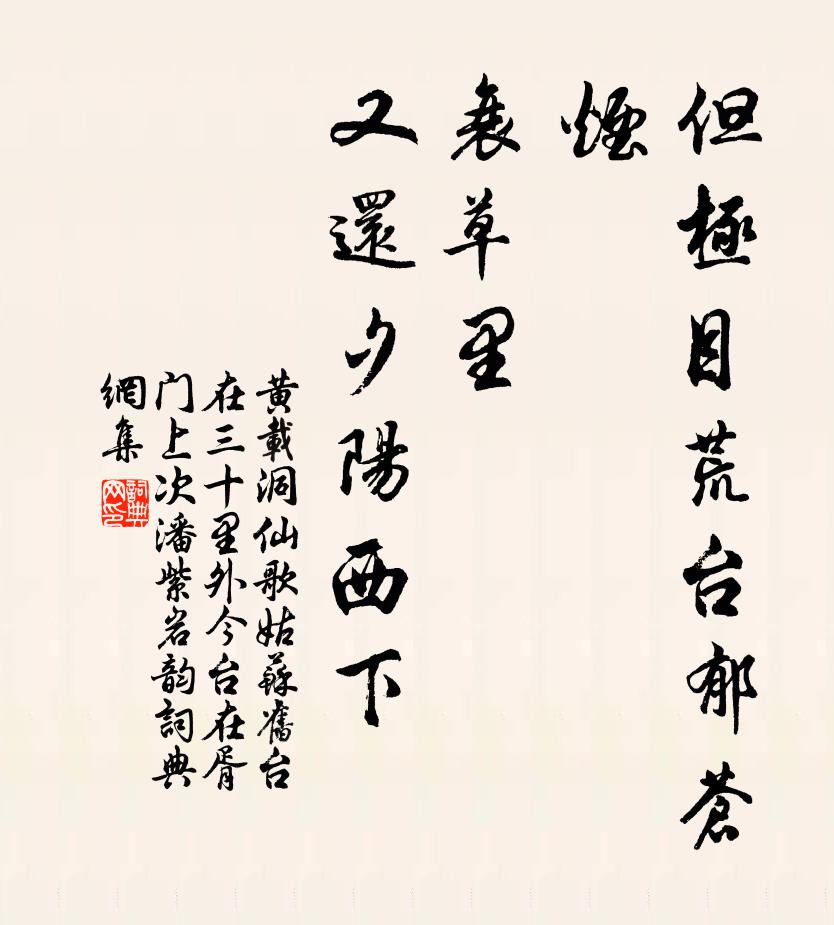 但極目荒台郁蒼
煙
衰草里
又還夕陽西下
黄載洞仙歌姑蘇舊台
在三十里外今台在胥
门上次潘紫岩韵詞典
網集
詞典
网印